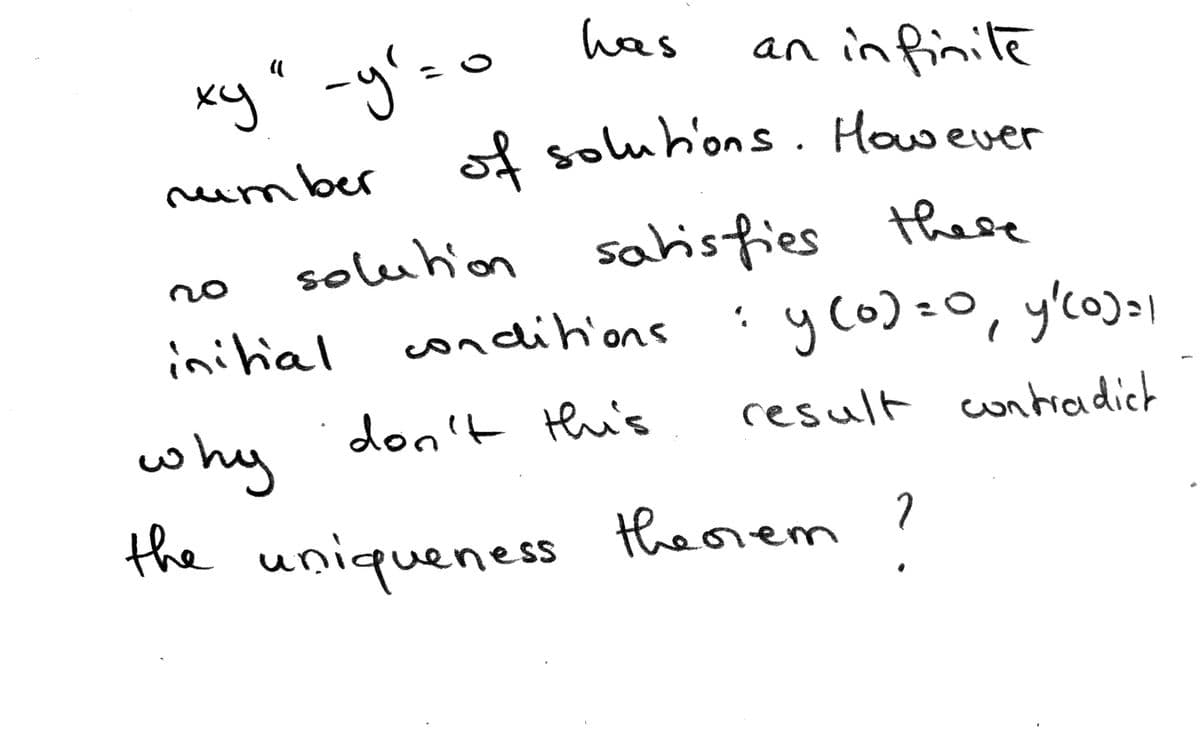 xy" - y' = 0 has an infinite
number of solutions. However
no solution satisfies these
initial conditions : y(0)=0, y'(0)=1
why don't this result contradict
the uniqueness theorem ?